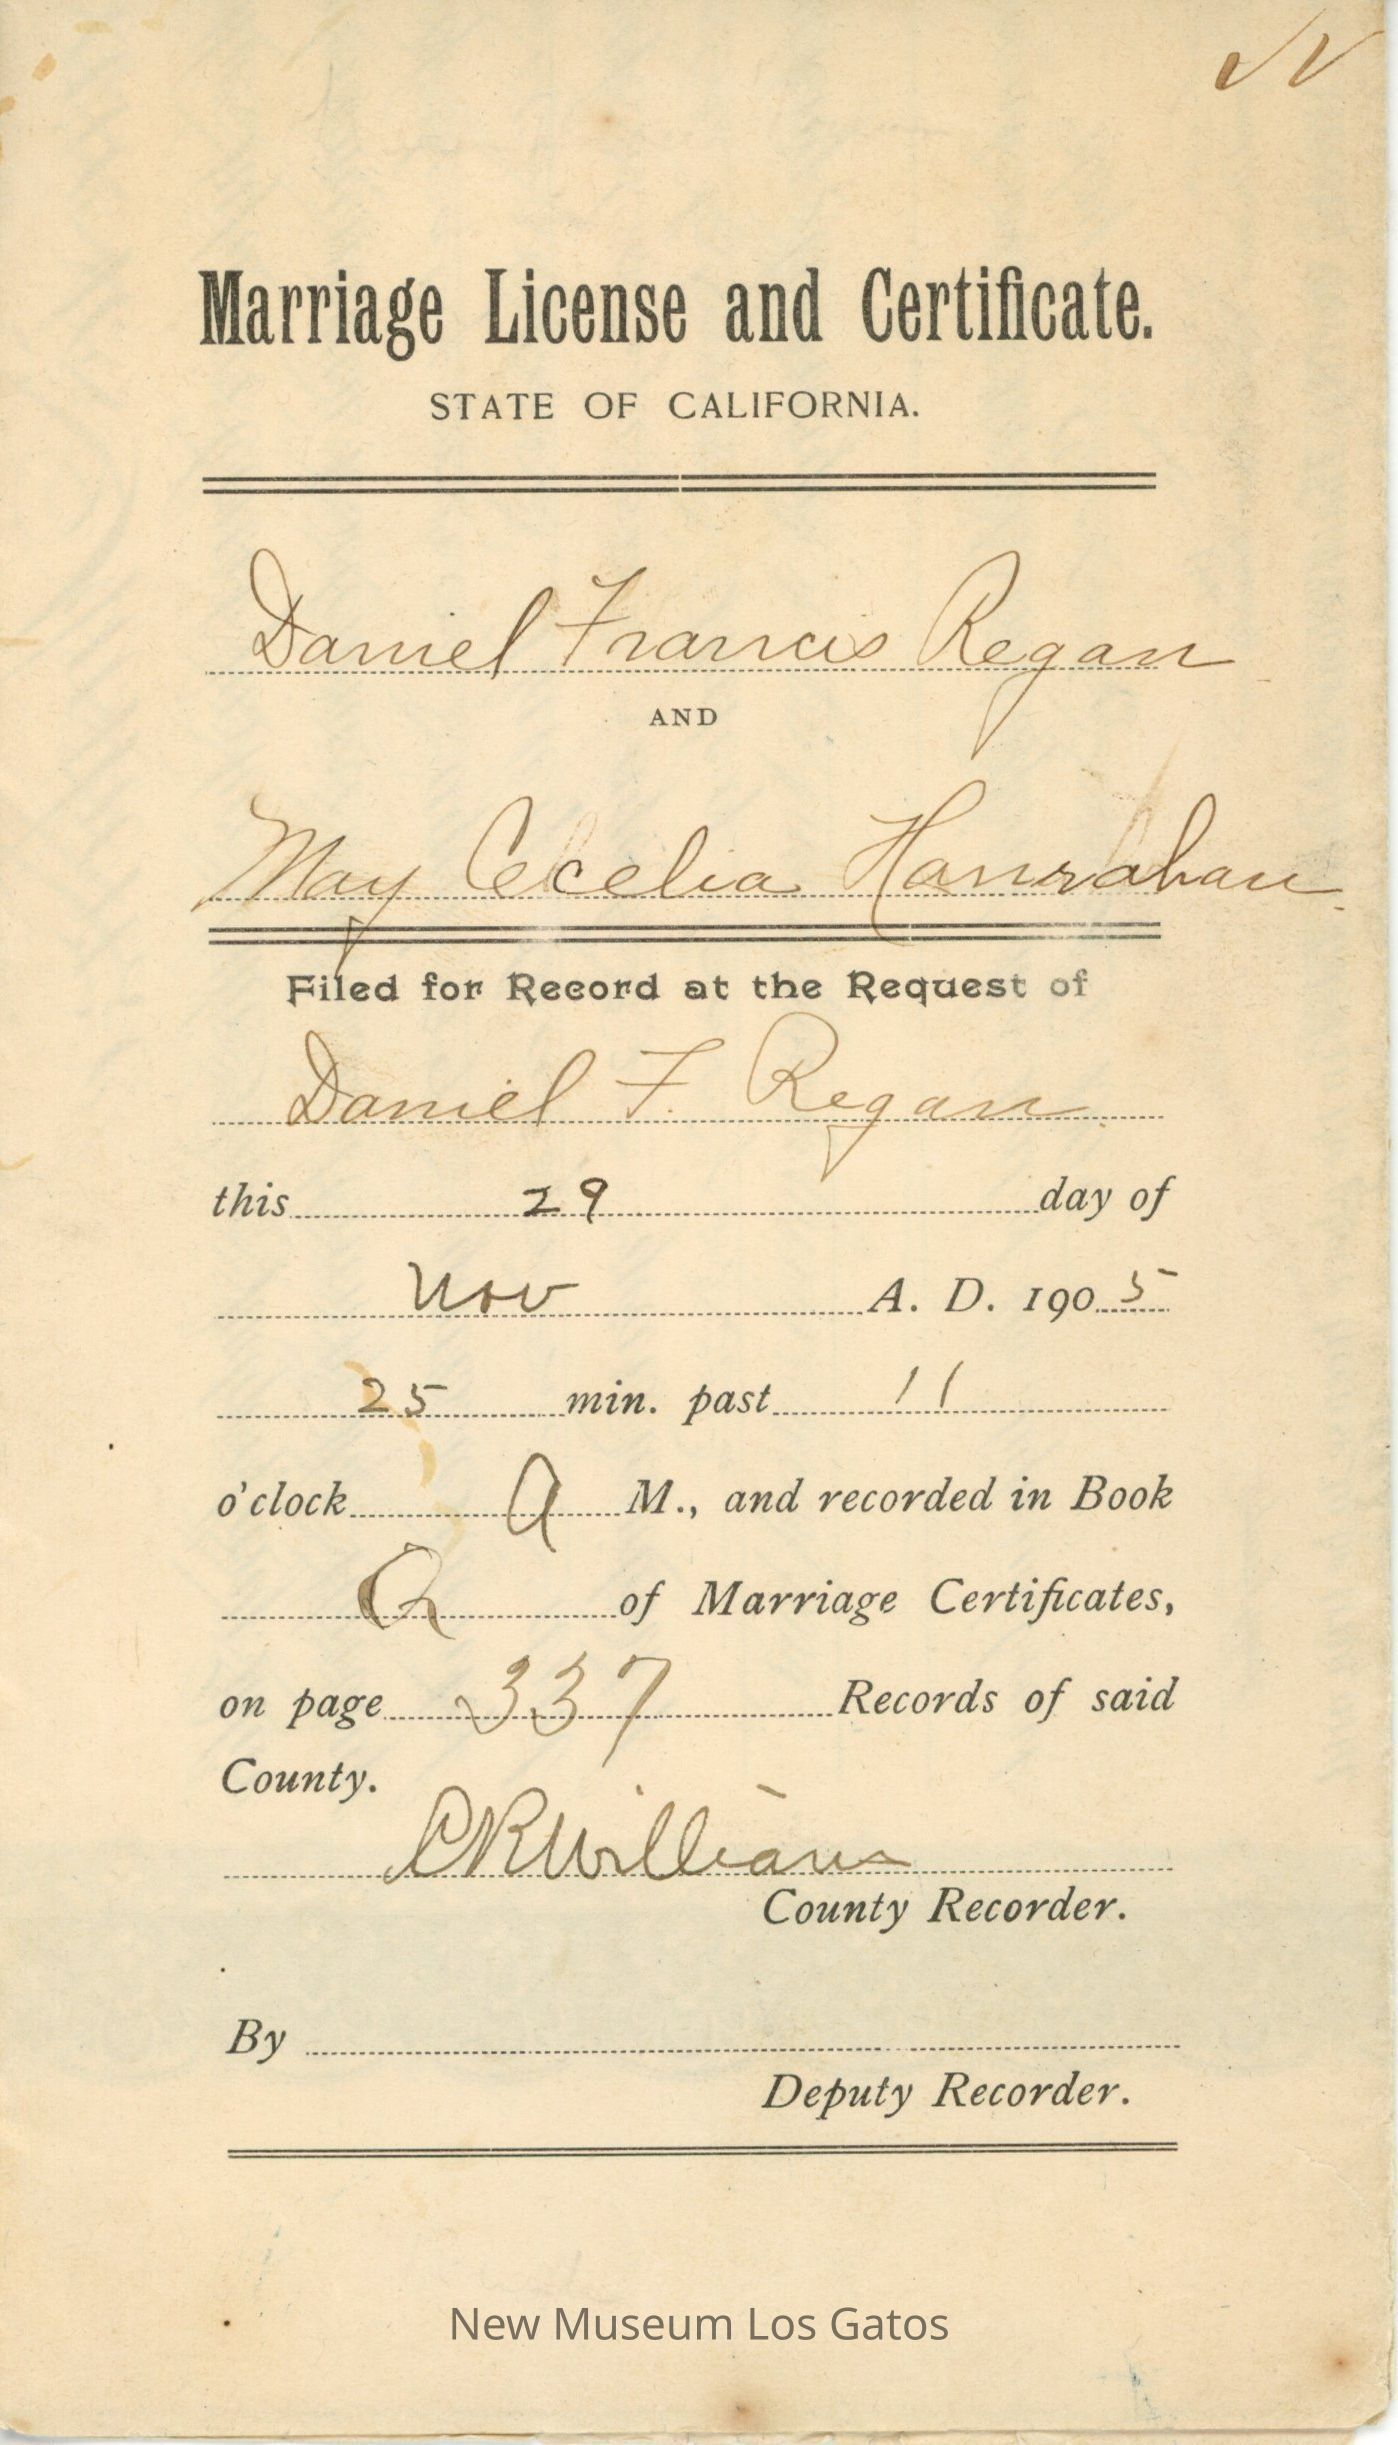 N
Marriage License and Certificate.
STATE OF CALIFORNIA.
Daniel Francis Regan
AND
May Cecelia Hanrahan
Filed for Record at the Request of
Daniel F. Regan
this 29 day of
Nov A. D. 1905
25 min. past 11
o'clock A M., and recorded in Book
Q of Marriage Certificates,
on page 337 Records of said
County.
C R Williams
County Recorder.
By
Deputy Recorder.
New Museum Los Gatos